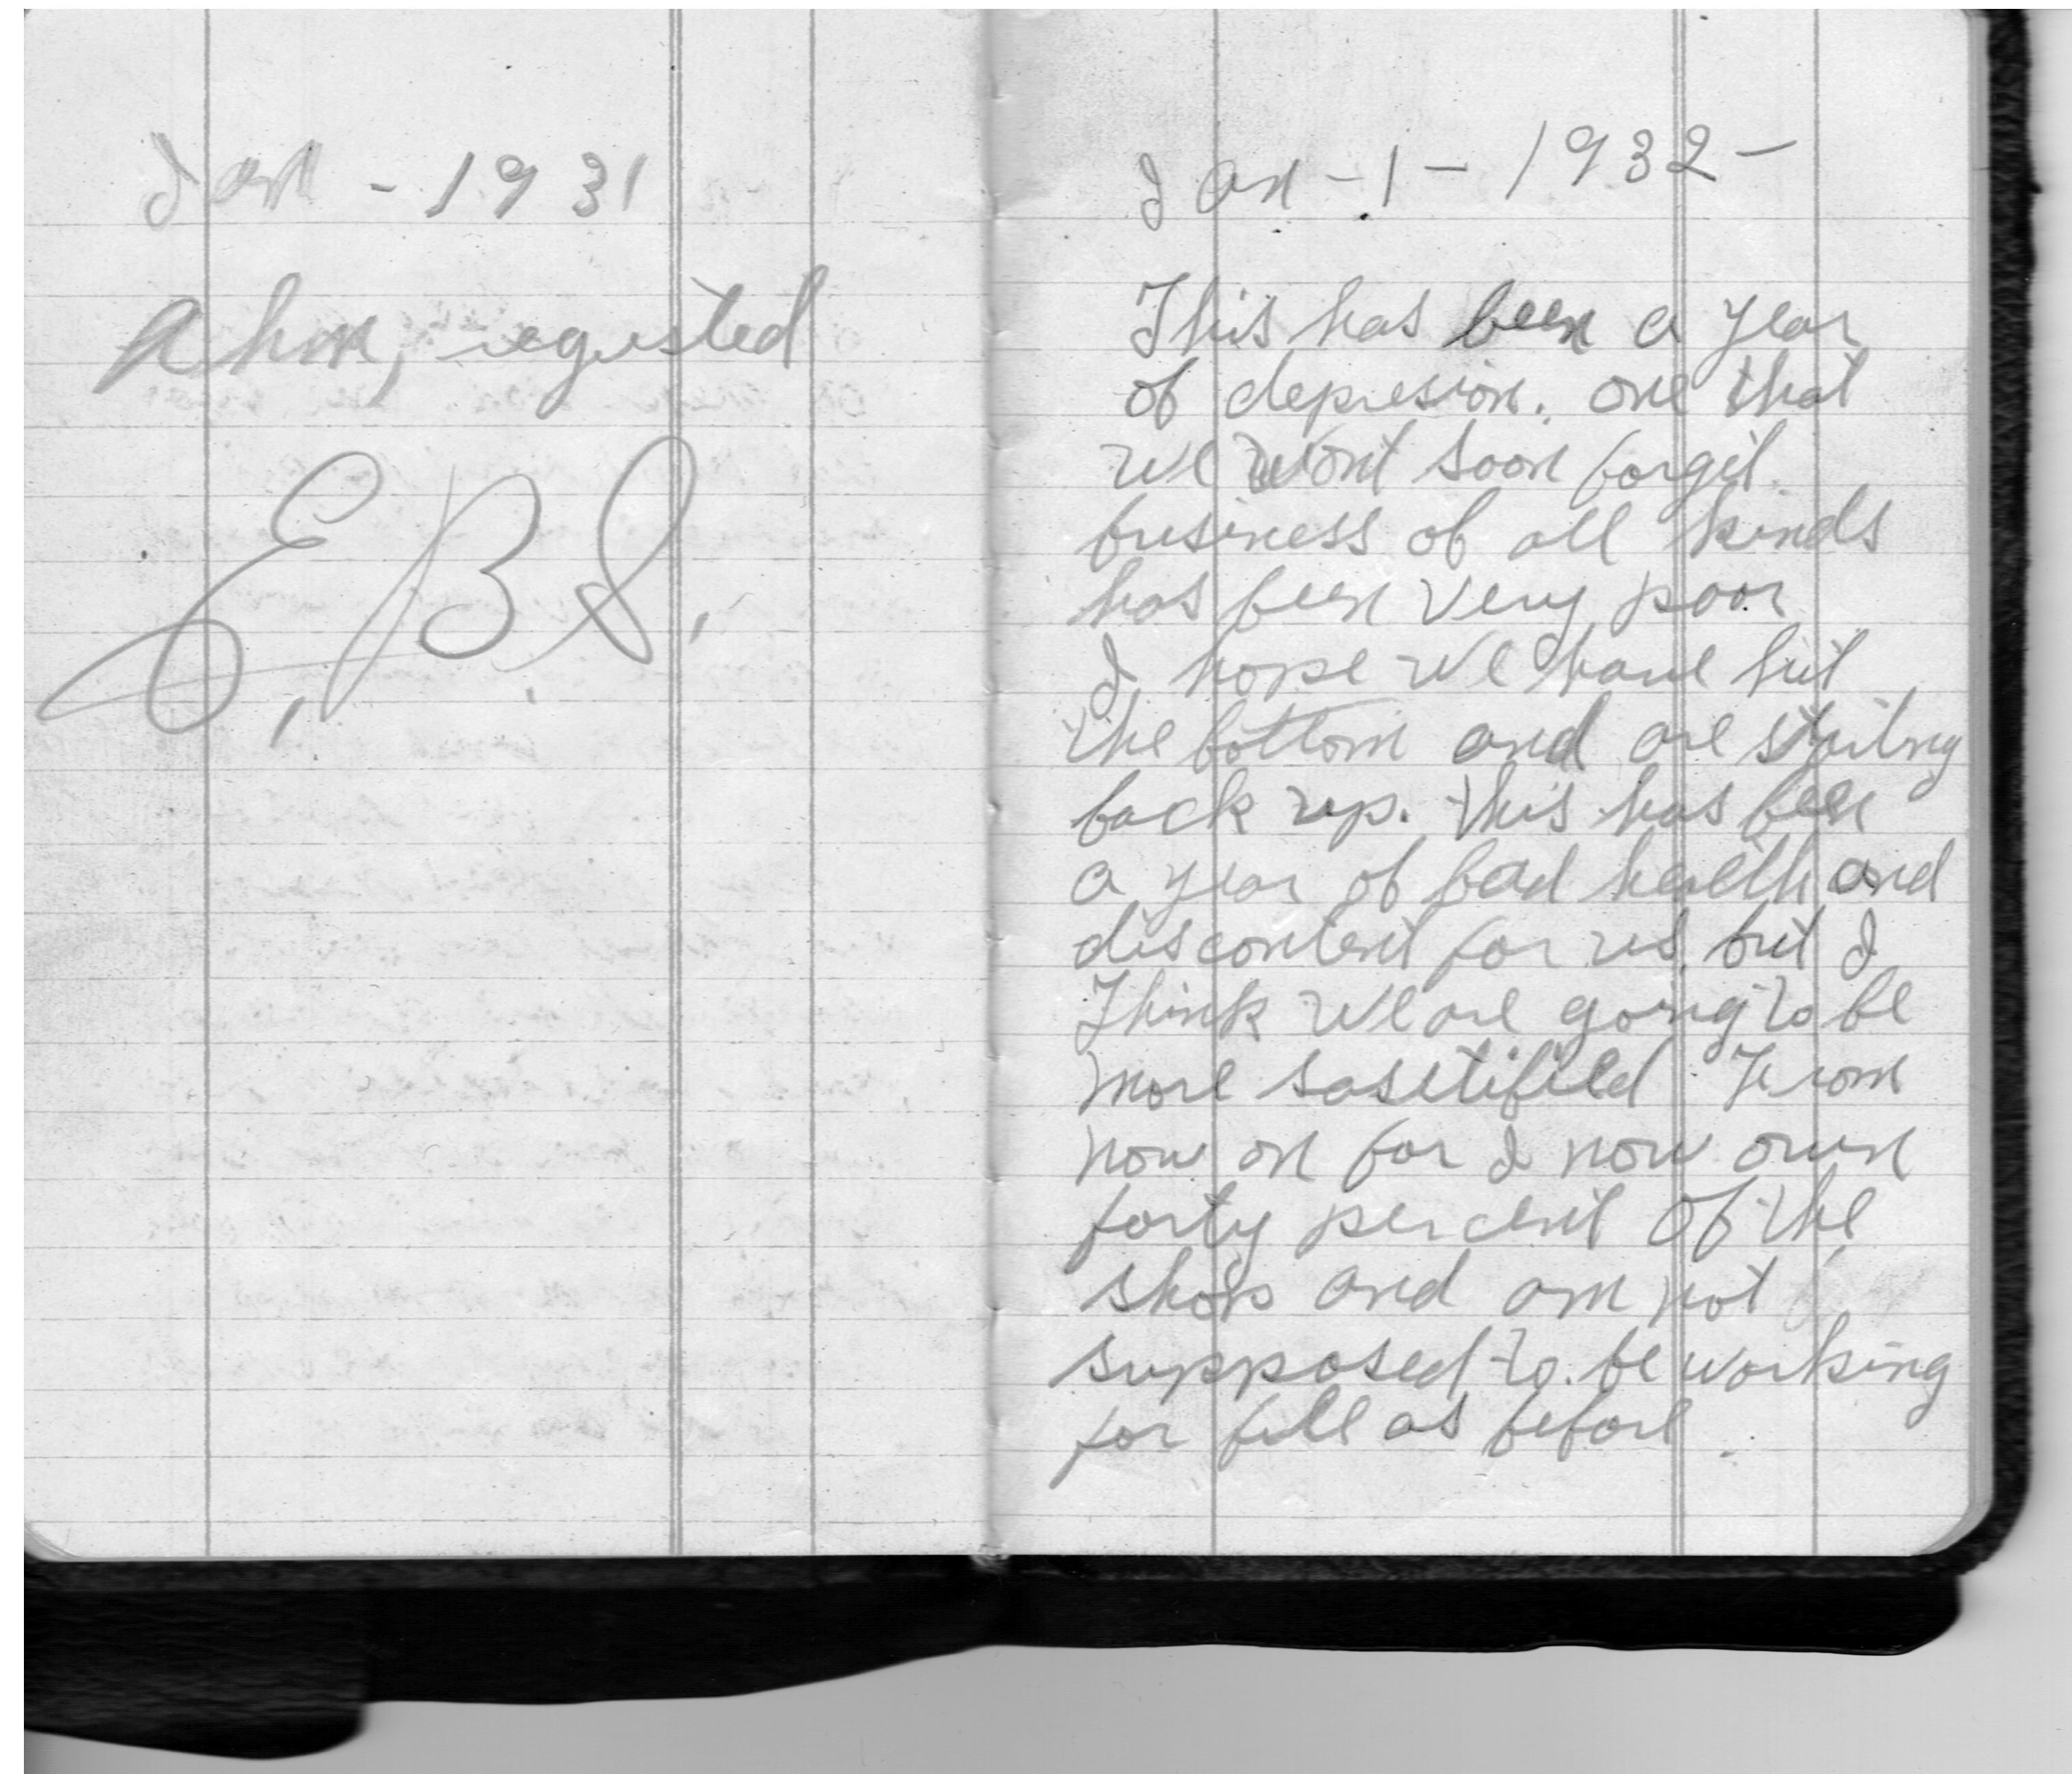 Jan - 1931
regusted
E. B. S.
Jan - 1 - 1932 -
This has been a year
of depresion. one that
we wont soon forgit
business of all kinds
has been very poor
I hope we have hit
the bottom and are starting
back up. this has been
a year of bad health and
discontent for us, but I
Think we are going to be
more sasitifild From
now on for I now own
forty percent of the
shop and am not
supposed to be working
for bill as before.